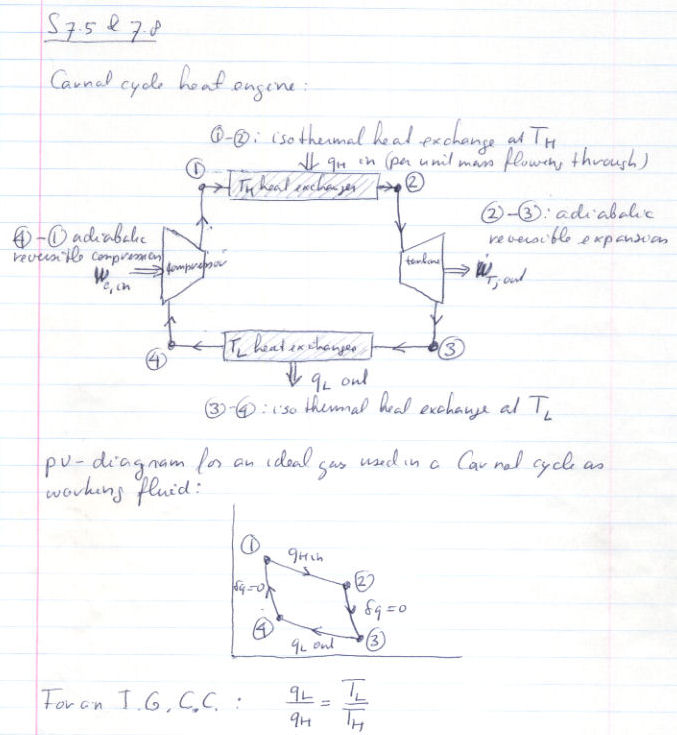 S 7.5 & 7.8
Carnot cycle heat engine:
①-②: isothermal heat exchange at TH
qH in (per unit mass flowing through)
①
TH heat exchanger
②
②-③: adiabatic
reversible expansion
④-① adiabatic
reversible compression
Ẇc,in
compressor
turbine
ẆT,out
④
TL heat exchanger
③
qL out
③-④: isothermal heat exchange at TL
pv-diagram for an ideal gas used in a Carnot cycle as
working fluid:
①
qH in
②
δq=0
δq=0
④
qL out
③
For an I.G.C.C.: qL/qH = TL/TH